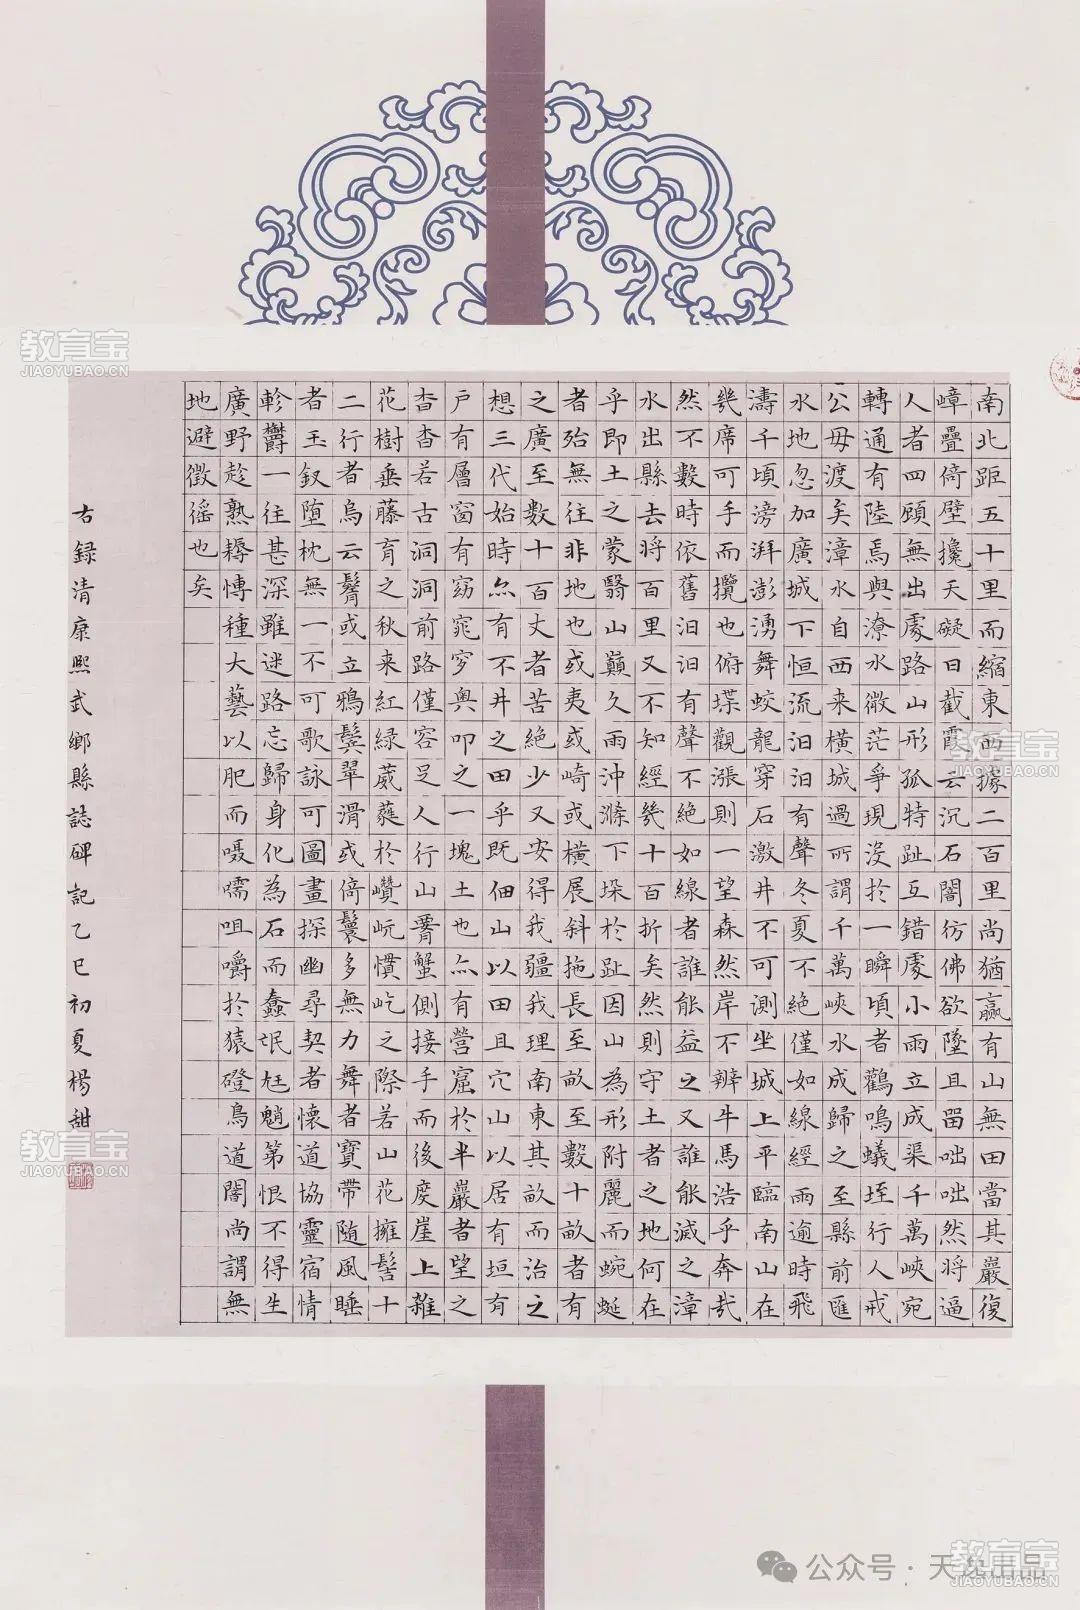 南北距五十里而縮東西據二百里尚猶贏有山無田當其嚴復
嶂疊倚壁攙天礙日截霞云沉石闇彷佛欲墜且畱咄咄然將逼
人者四顧無出處路山形孤特趾互錯處小雨立成渠千萬峽宛
轉通有陸焉與潦水微茫爭現没於一瞬頃者鸛鳴蟻垤行人戒
公毋渡矣漳水自西来橫城過所謂千萬峽水成歸之至縣前匯
水地忽加廣城下恒流汩汩有聲冬夏不絕僅如線經雨逾時飛
濤千頃滂湃澎湧舞蛟龍穿石激井不可測坐城上平臨南山在
幾席可手而攬也俯堞觀漲則一望森然岸不辨牛馬浩乎奔㢤
然不數時依舊汩汩有聲不絕如線者誰能益之又誰能減之漳
水出縣去將百里又不知經幾十百折矣然則守土者之地何在
乎即土之蒙翳山巔久雨沖滌下垜於趾因山為形附麗而蜿蜒
者殆無往非地也或夷或崎或橫展斜拖長至畝至數十畝者有
之廣至數十百丈者苦絕少又安得我疆我理南東其畝而治之
想三代始時亦有不井之田乎既佃山以田且穴山以居有垣有
户有層窗有窈窕穾奧叩之一塊土也亦有營窟於半巖者望之
杳杳若古洞洞前路僅容足人行山霤蟹側接手而後度崖上雜
花樹垂藤育之秋来紅綠葳蕤於巑岏慣屹之際若山花擁髻十
二行者烏云鬢或立鴉鬓翠滑或倚鬟多無力舞者寶帶随風睡
者玉釵墮枕無一不可歌詠可圖畫探幽尋契者懷道協靈宿情
軫欝一往甚深雖迷路忘歸身化為石而蠢氓尫魈第恨不得生
廣野趁熟耨慱種大藝以肥而嗫嚅咀嚼於猿磴鳥道闇尚謂無
地避徵徭也矣
右録清康熙武鄉縣誌碑記乙巳初夏楊甜
教育宝
JIAOYUBAO.CN
教育宝
JIAOYUBAO.CN
教育宝
JIAOYUBAO.CN
教育宝
JIAOYUBAO.CN
公众号·天逸出品